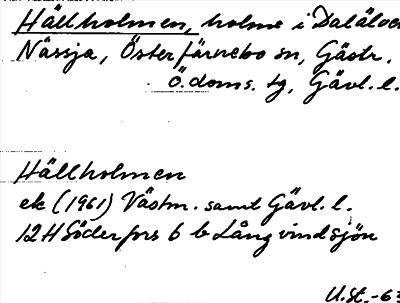 Hällholmen, holme i Dalälven
Nässja, Österfärnebo sn, Gästr.
Ö. doms. tg, Gävl. l.
Hällholmen
ek (1961) Västm. samt Gävl. l.
12H Söderfors 6 b Långvindsjön
U.St.-63